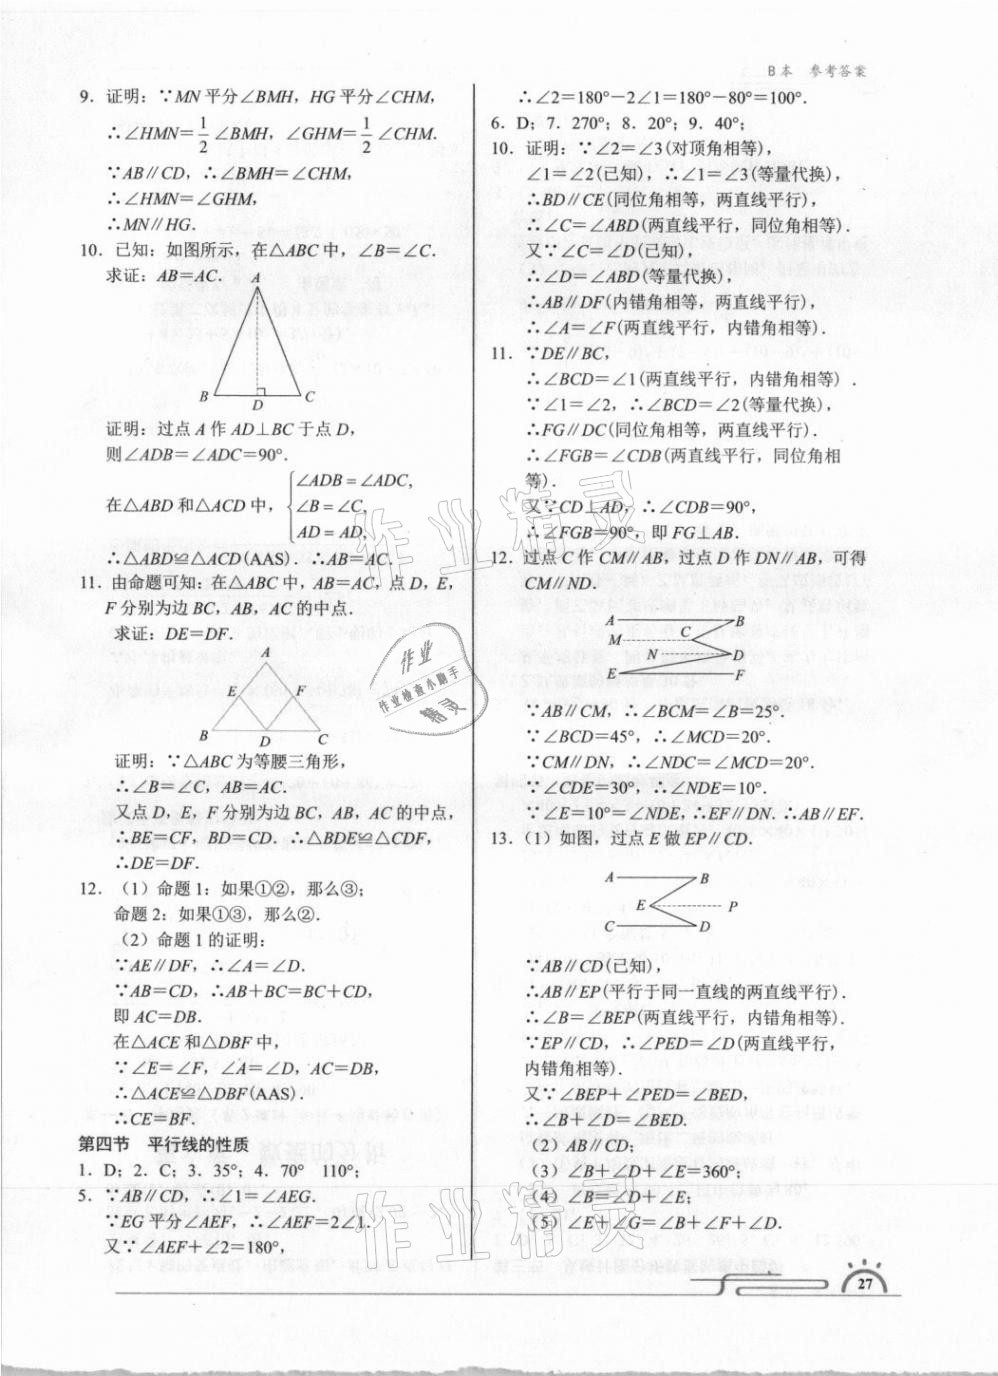 B本 参考答案
9. 证明：∵MN平分∠BMH，HG平分∠CHM，
∴∠HMN=1/2∠BMH，∠GHM=1/2∠CHM.
∵AB∥CD，∴∠BMH=∠CHM，
∴∠HMN=∠GHM，
∴MN∥HG.
10. 已知：如图所示，在△ABC中，∠B=∠C.
求证：AB=AC.
A
B
D
C
证明：过点A作AD⊥BC于点D，
则∠ADB=∠ADC=90°.
在△ABD和△ACD中，{∠ADB=∠ADC,
∠B=∠C,
AD=AD,
∴△ABD≌△ACD(AAS). ∴AB=AC.
11. 由命题可知：在△ABC中，AB=AC，点D，E，
F分别为边BC，AB，AC的中点.
求证：DE=DF.
A
E
F
B
D
C
证明：∵△ABC为等腰三角形，
∴∠B=∠C，AB=AC.
又点D，E，F分别为边BC，AB，AC的中点，
∴BE=CF，BD=CD. ∴△BDE≌△CDF，
∴DE=DF.
12. （1）命题1：如果①②，那么③；
命题2：如果①③，那么②.
（2）命题1的证明：
∵AE∥DF，∴∠A=∠D.
∵AB=CD，∴AB+BC=BC+CD，
即AC=DB.
在△ACE和△DBF中，
∵∠E=∠F，∠A=∠D，AC=DB，
∴△ACE≌△DBF(AAS).
∴CE=BF.
第四节 平行线的性质
1. D；2. C；3. 35°；4. 70° 110°；
5. ∵AB∥CD，∴∠1=∠AEG.
∵EG平分∠AEF，∴∠AEF=2∠1.
又∵∠AEF+∠2=180°，
∴∠2=180°−2∠1=180°−80°=100°.
6. D；7. 270°；8. 20°；9. 40°；
10. 证明：∵∠2=∠3(对顶角相等)，
∠1=∠2(已知)，∴∠1=∠3(等量代换)，
∴BD∥CE(同位角相等，两直线平行)，
∴∠C=∠ABD(两直线平行，同位角相等).
又∵∠C=∠D(已知)，
∴∠D=∠ABD(等量代换)，
∴AB∥DF(内错角相等，两直线平行)，
∴∠A=∠F(两直线平行，内错角相等).
11. ∵DE∥BC，
∴∠BCD=∠1(两直线平行，内错角相等).
∵∠1=∠2，∴∠BCD=∠2(等量代换)，
∴FG∥DC(同位角相等，两直线平行).
∴∠FGB=∠CDB(两直线平行，同位角相
等).
又∵CD⊥AD，∴∠CDB=90°，
∴∠FGB=90°，即FG⊥AB.
12. 过点C作CM∥AB，过点D作DN∥AB，可得
CM∥ND.
A
B
M
C
N
D
E
F
∵AB∥CM，∴∠BCM=∠B=25°.
∵∠BCD=45°，∴∠MCD=20°.
∵CM∥DN，∴∠NDC=∠MCD=20°.
∵∠CDE=30°，∴∠NDE=10°.
∵∠E=10°=∠NDE，∴EF∥DN. ∴AB∥EF.
13. （1）如图，过点E做EP∥CD.
A
B
E
P
C
D
∵AB∥CD(已知)，
∴AB∥EP(平行于同一直线的两直线平行).
∴∠B=∠BEP(两直线平行，内错角相等).
∵EP∥CD，∴∠PED=∠D(两直线平行，
内错角相等).
又∵∠BEP+∠PED=∠BED，
∴∠B+∠D=∠BED.
（2）AB∥CD；
（3）∠B+∠D+∠E=360°；
（4）∠B=∠D+∠E；
（5）∠E+∠G=∠B+∠F+∠D.
27
作业精灵
作业
作业检查小助手
精灵
作业精灵